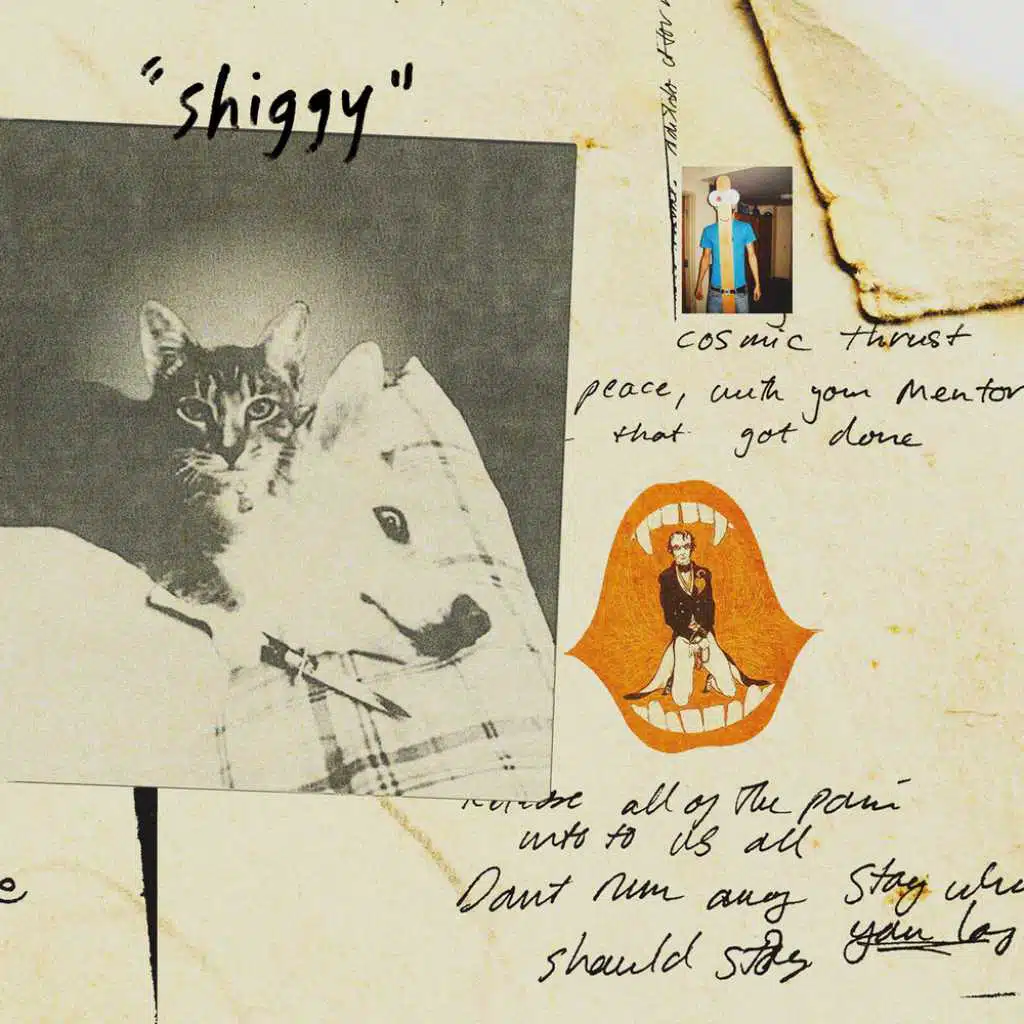 "shiggy"
cosmic thrust
peace, with your Mentor
that got done
all of the pain
into to us all
Dont run away Stay
should stay you lay